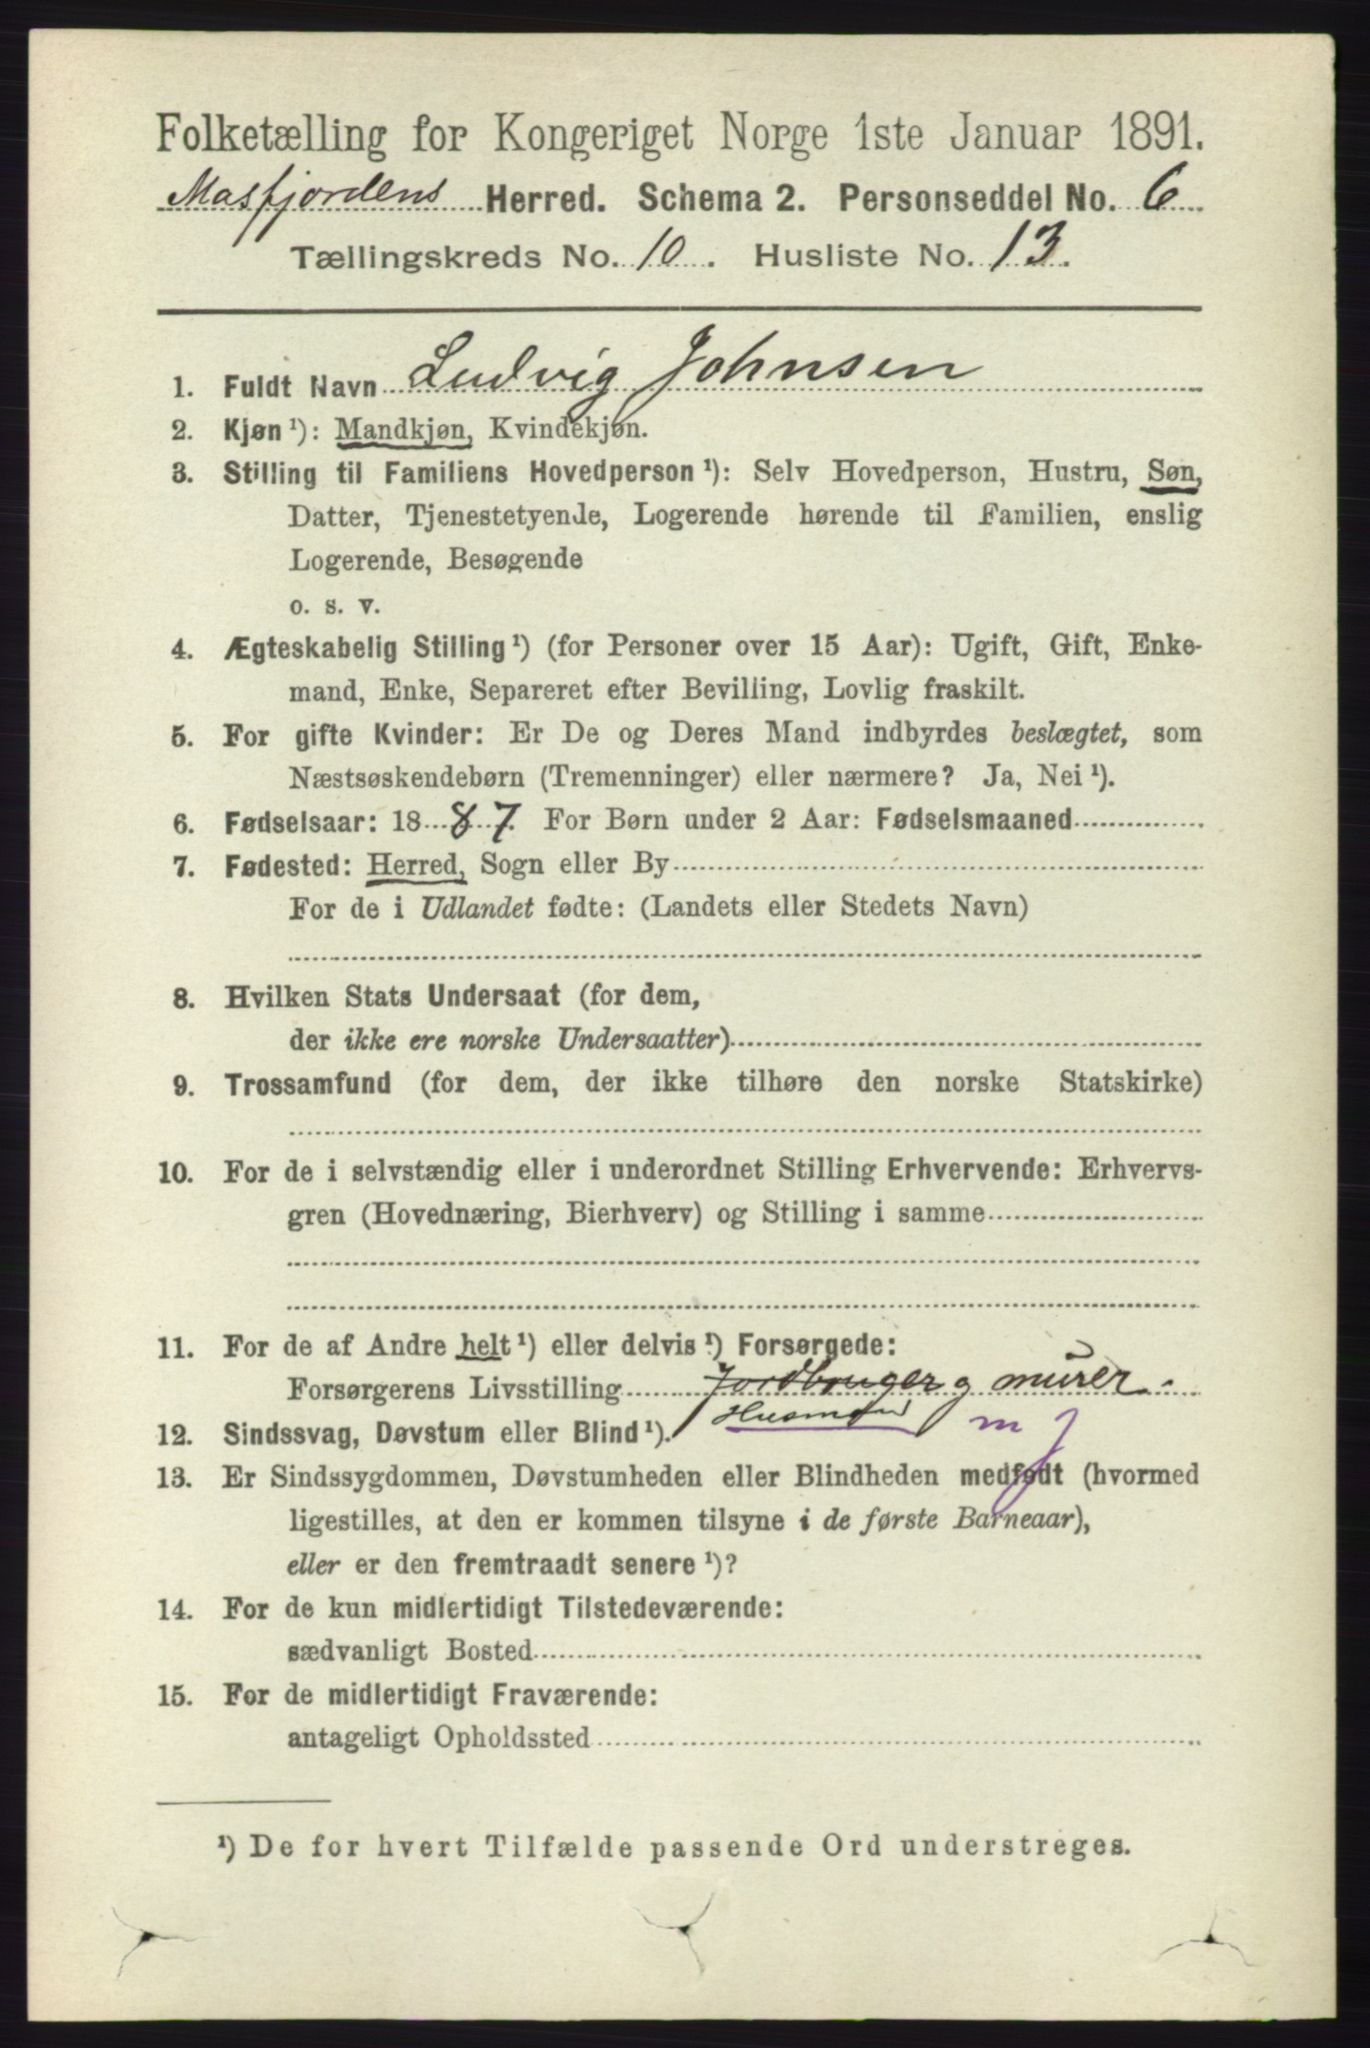 Folketælling for Kongeriget Norge 1ste Januar 1891.
Masfjordens Herred. Schema 2. Personseddel No. 6
Tællingskreds No. 10. Husliste No. 13.
1. Fuldt Navn Ludvig Johnsen
2. Kjøn¹): Mandkjøn, Kvindekjøn.
3. Stilling til Familiens Hovedperson¹): Selv Hovedperson, Hustru, Søn,
Datter, Tjenestetyende, Logerende hørende til Familien, enslig
Logerende, Besøgende
o. s. v.
4. Ægteskabelig Stilling¹) (for Personer over 15 Aar): Ugift, Gift, Enke-
mand, Enke, Separeret efter Bevilling, Lovlig fraskilt.
5. For gifte Kvinder: Er De og Deres Mand indbyrdes beslægtet, som
Næstsøskendebørn (Tremenninger) eller nærmere? Ja, Nei¹).
6. Fødselsaar: 1887. For Børn under 2 Aar: Fødselsmaaned
7. Fødested: Herred, Sogn eller By
For de i Udlandet fødte: (Landets eller Stedets Navn)
8. Hvilken Stats Undersaat (for dem,
der ikke ere norske Undersaatter)
9. Trossamfund (for dem, der ikke tilhøre den norske Statskirke)
10. For de i selvstændig eller i underordnet Stilling Erhvervende: Erhvervs-
gren (Hovednæring, Bierhverv) og Stilling i samme
11. For de af Andre helt¹) eller delvis¹) Forsørgede:
Forsørgerens Livsstilling Jordbruger g murer.
Husmand m J
12. Sindssvag, Døvstum eller Blind¹).
13. Er Sindssygdommen, Døvstumheden eller Blindheden medfødt (hvormed
ligestilles, at den er kommen tilsyne i de første Barneaar),
eller er den fremtraadt senere¹)?
14. For de kun midlertidigt Tilstedeværende:
sædvanligt Bosted
15. For de midlertidigt Fraværende:
antageligt Opholdssted
¹) De for hvert Tilfælde passende Ord understreges.